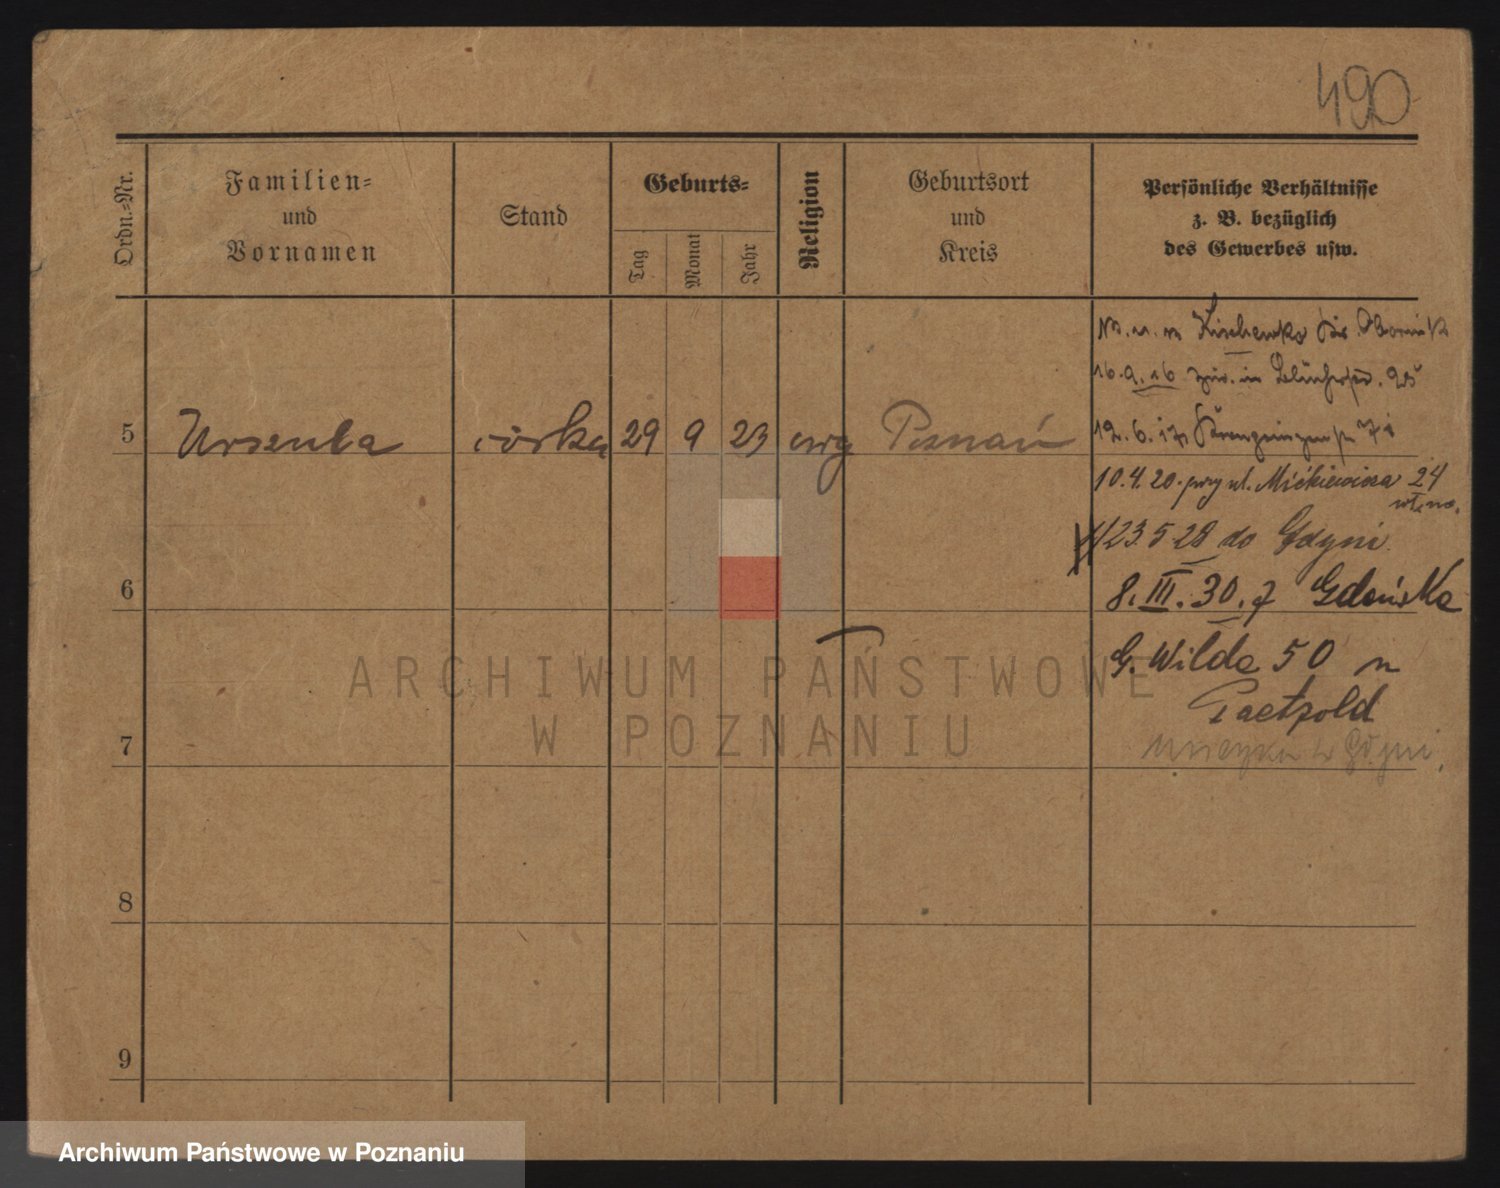 490
Ordn.-Nr.
Familien-
und
Vornamen
Stand
Geburts-
Tag
Monat
Jahr
Religion
Geburtsort
und
Kreis
Persönliche Verhältnisse
z. B. bezüglich
des Gewerbes usw.
16.9.16 in 25
5 Urszula córka 29 9 23 ewg Poznań
12.6.17
10.4.20 przy ul. Mickiewicza 24
23.5.28 do Gdyni
6
8.III.30. z Gdańska
G. Wilda 50 u
Paetzold
7
w Gdyni
8
9
ARCHIWUM PAŃSTWOWE
W POZNANIU
Archiwum Państwowe w Poznaniu